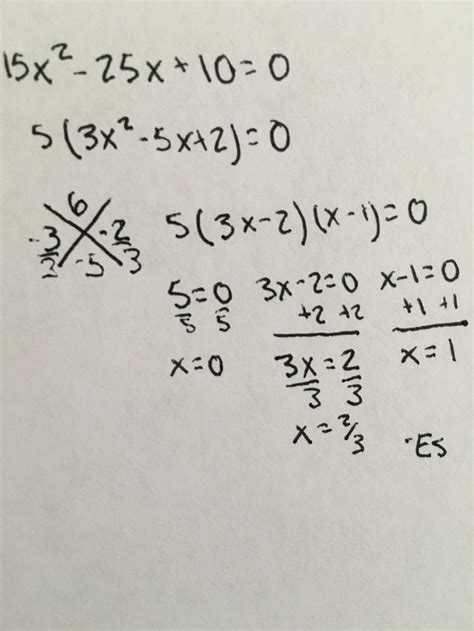 15x²-25x+10=0
5(3x²-5x+2)=0
6
-3/3 -2/3
-5
5(3x-2)(x-1)=0
5=0 3x-2=0 x-1=0
5 5 +2 +2 +1 +1
x=0 3x=2 x=1
3 3
x=2/3
-Es